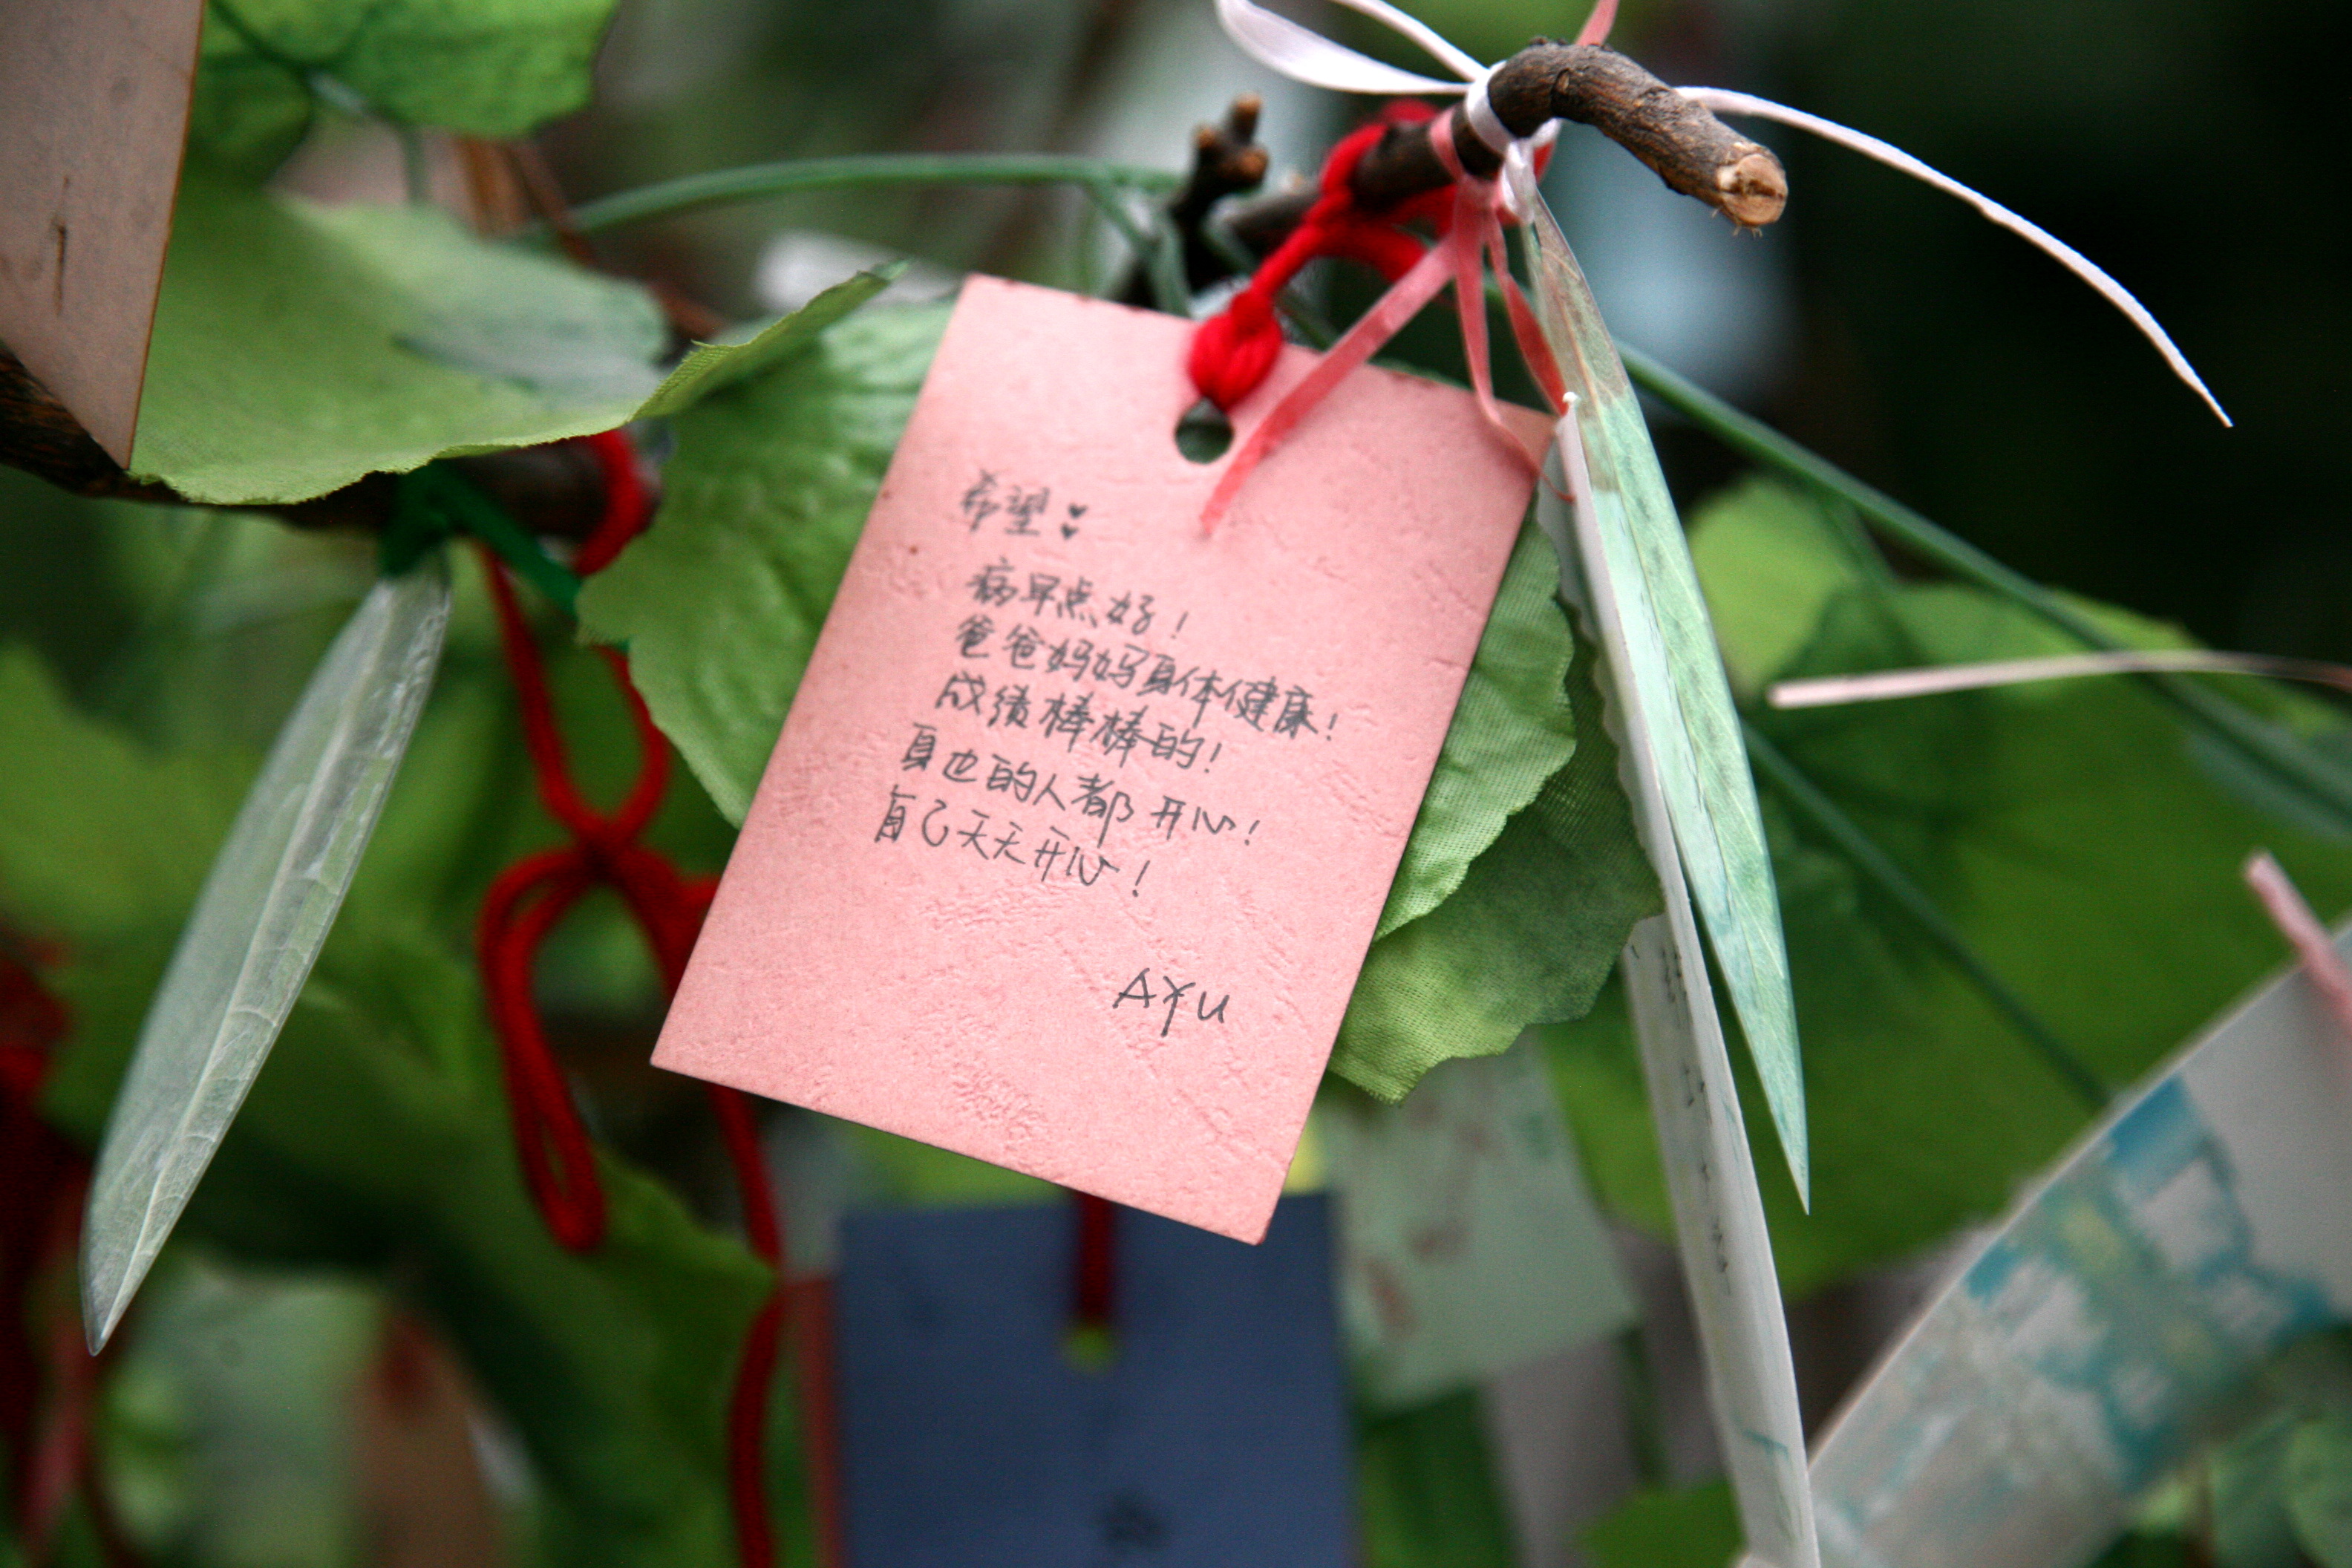 希望：
病早点好！
爸爸妈妈身体健康！
成绩棒棒的！
身边的人都开心！
自己天天开心！
AYU